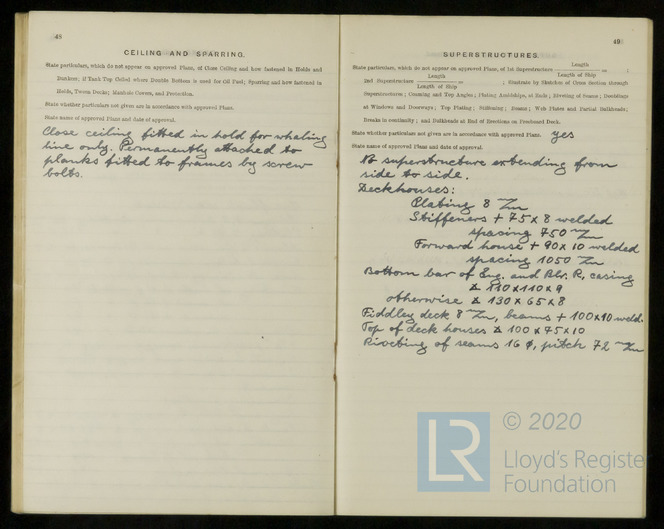 48
CEILING AND SPARRING.
State particulars, which do not appear on approved Plans, of Close Ceiling and how fastened in Holds and
Bunkers; if Tank Top Ceiled where Double Bottom is used for Oil Fuel; Sparring and how fastened in
Holds, Tween Decks; Manhole Covers, and Protection.
State whether particulars not given are in accordance with approved Plans.
State name of approved Plans and date of approval.
Close ceiling fitted in hold for whaling
line only. Permanently attached to
planks fitted to frames by screw
bolts.
49
SUPERSTRUCTURES.
State particulars, which do not appear on approved Plans, of 1st Superstructure Length / Length of Ship = ;
2nd Superstructure Length / Length of Ship = ; Illustrate by Sketches of Cross Section through
Superstructures; Coaming and Top Angles; Plating Amidships, at Ends; Riveting of Seams; Doublings
at Windows and Doorways; Top Plating; Stiffening; Beams; Web Plates and Partial Bulkheads;
Breaks in continuity; and Bulkheads at End of Erections on Freeboard Deck.
State whether particulars not given are in accordance with approved Plans. yes
State name of approved Plans and date of approval.
No superstructure extending from
side to side.
Deckhouses:
Plating 8 m/m
Stiffeners + 75 x 8 welded
spacing 750 m/m
Forward house + 90 x 10 welded
spacing 1050 m/m
Bottom bar of Eng. and Blr. R. casing
∆ 110 x 110 x 9
otherwise ∆ 130 x 65 x 8
Fiddley deck 8 m/m, beams + 100x10 weld.
Top of deck houses ∆ 100 x 75 x 10
Rivetting of seams 16 ø, pitch 72 m/m
LR © 2020
Lloyd's Register
Foundation